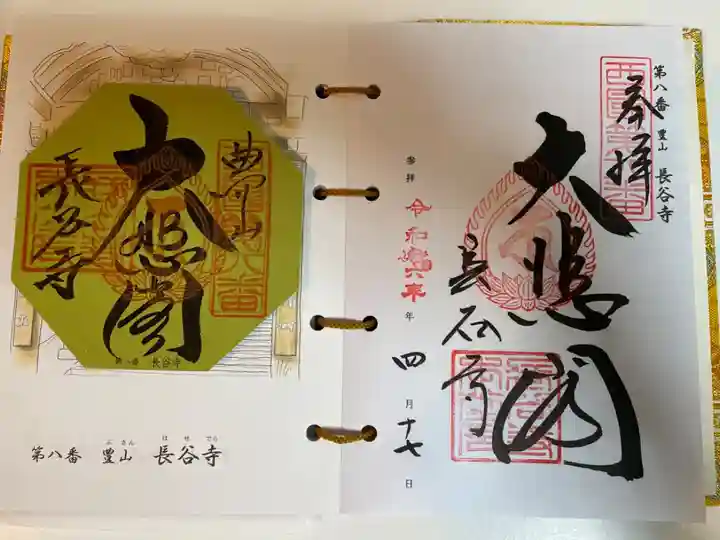 第八番 豊山 長谷寺
奉拝
西国第八番
大悲閣
長谷寺
参拝 令和六年 四月十七日
豊山
大悲閣
長谷寺
第八番 長谷寺
ぶさん はせでら
第八番 豊山 長谷寺